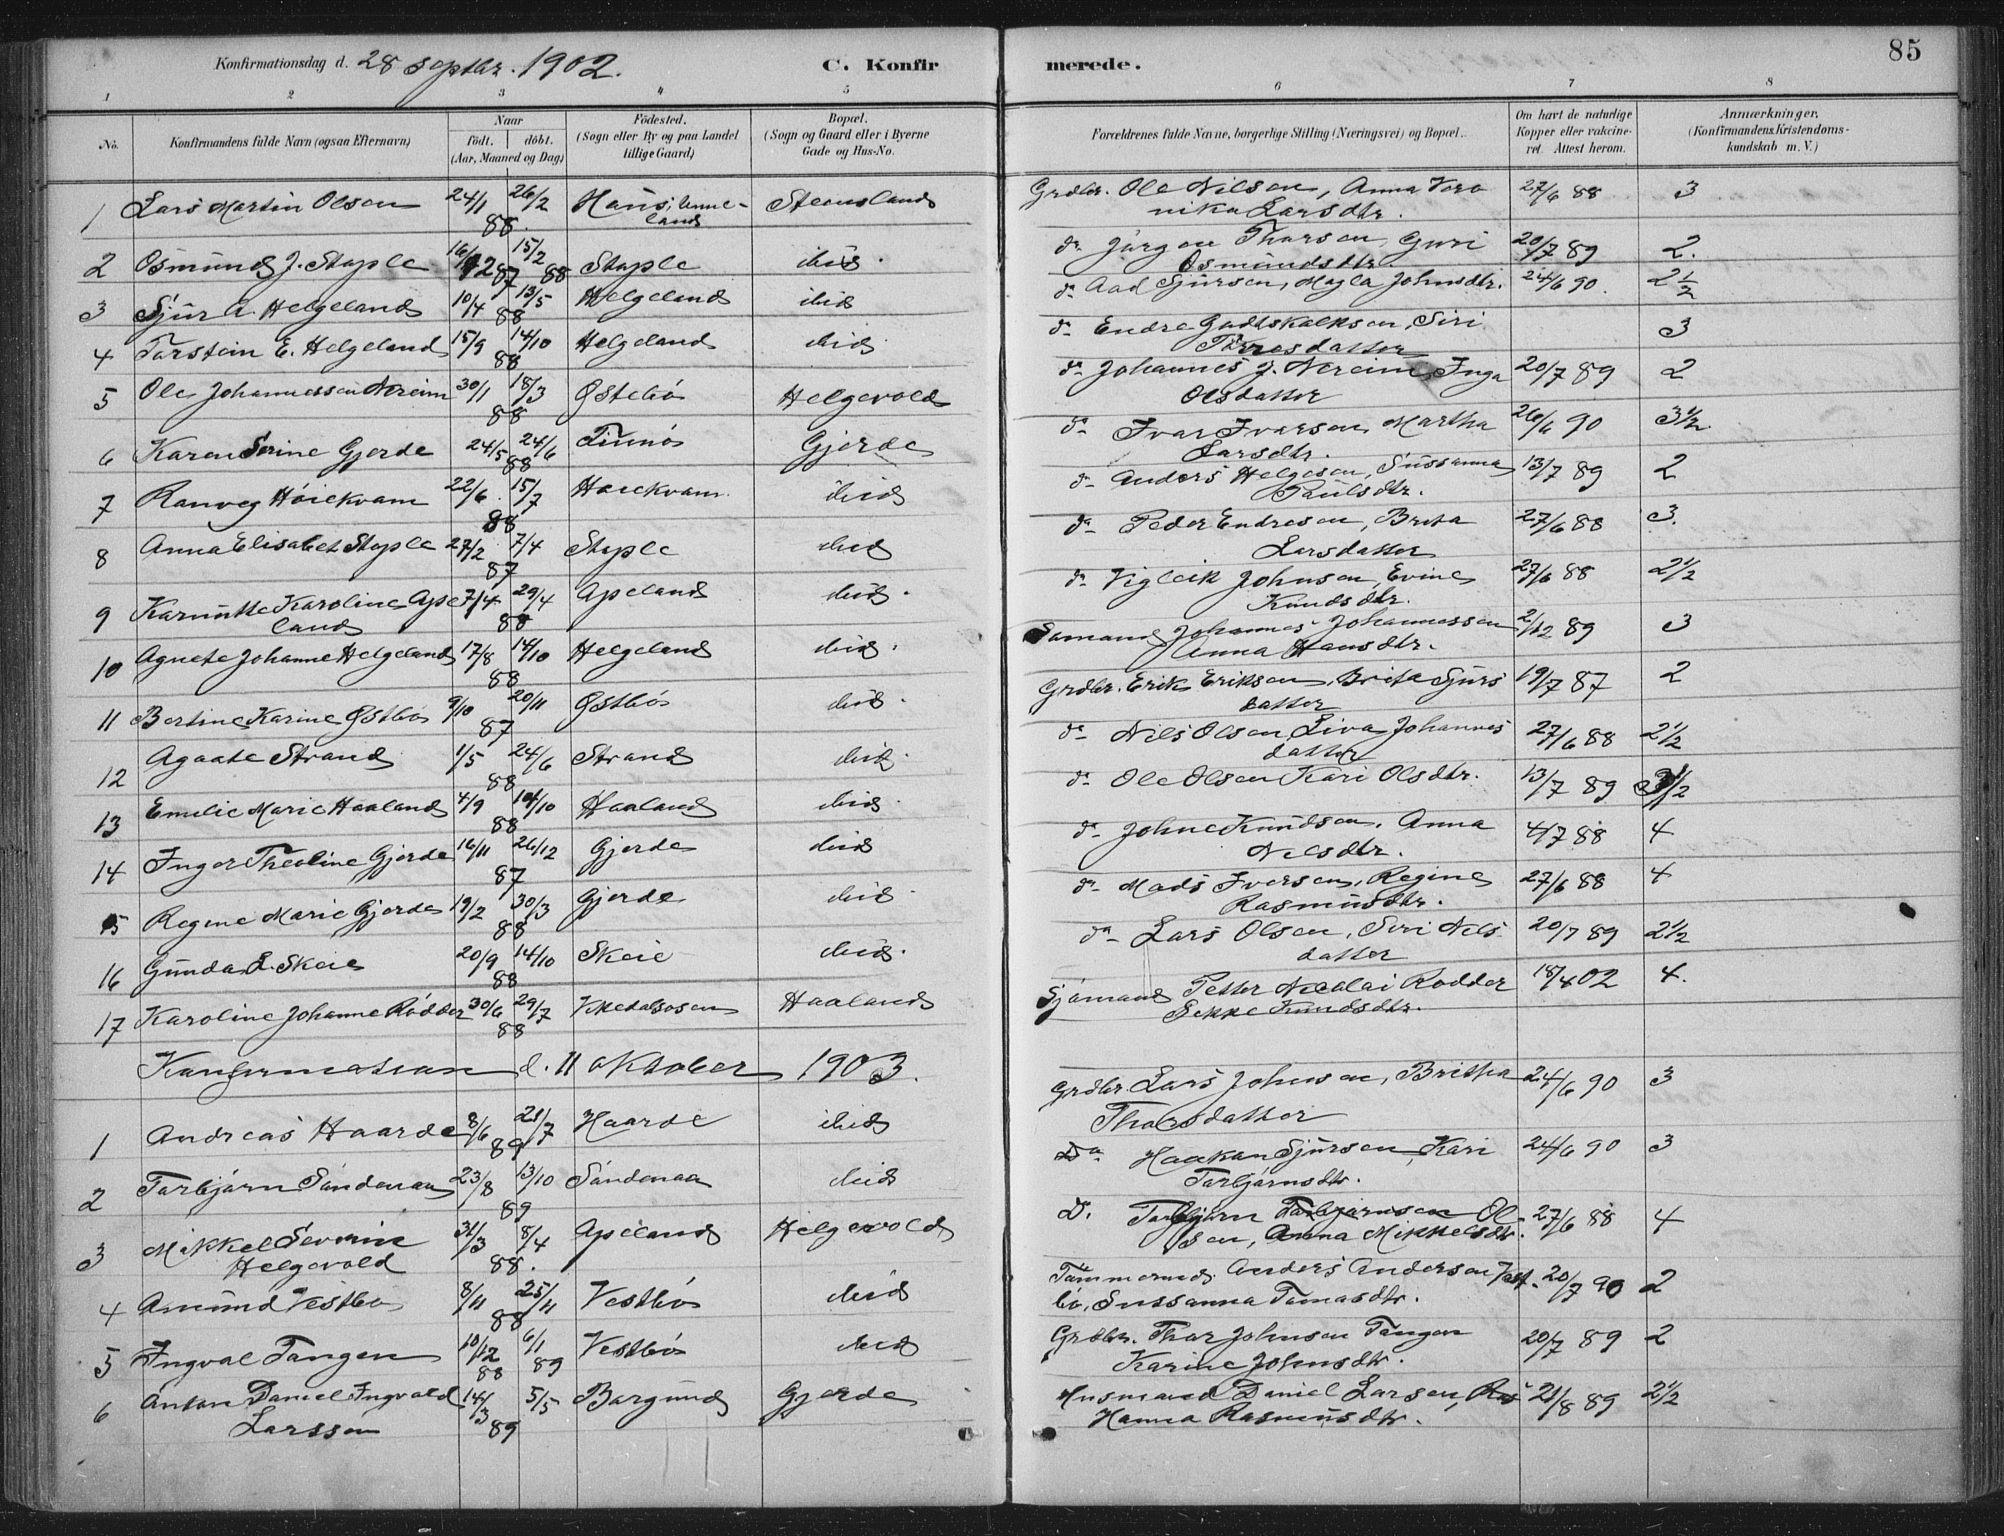 85
Konfirmationsdag d. 28 septbr. 1902.
C. Konfirmerede.
1 2 3 4 5 6 7 8
No.
Konfirmandens fulde Navn (ogsaa Efternavn)
Naar
födt. döbt.
(Aar, Maaned og Dag)
Födested.
(Sogn eller By og paa Landet
tillige Gaard)
Bopæl.
(Sogn og Gaard eller i Byerne
Gade og Hus-No.
Forældrenes fulde Navne, borgerlige Stilling (Næringsvei) og Bopæl.
Om havt de naturlige
Kopper eller vakcine-
ret. Attest herom.
Anmærkninger.
(Konfirmandens Kristendoms-
kundskab m. V.)
1 Lars Martin Olsen 24/1 26/2 88. Steensland Grdbr. Ole Nilsen, Anna Vero
nika Larsdtr. 27/6 88 3
2 Osmund J. Staple 16/12 87 15/2 88 Staple ibid. do Jörgen Thorsen, Guri
Osmundsdtr. 20/7 89 2.
3 Sjur A. Helgeland 10/4 13/5 88 Helgeland ibid do Aad Sjursen, Magla Johnsdtr. 24/6 90. 2 1/2
4 Torstein E. Helgeland 15/9 14/10 88 Helgeland ibid. do Endre Godtskalksen, Siri
3
5 Ole Johannessen Nereim 30/1 18/3 88 Østebö Helgevold do Johannes J. Nereim, Inga
Olsdatter 20/7 89 2
6 Karen Serine Gjerde 24/5 24/6 88 Gjerde do Ivar Ivarsen, Martha
Larsdtr. 26/6 90 3 1/2
7 Ranveg Höiekvam 22/6 15/7 88 Høiekvam ibid do Anders Helgesen, Sussanna
Paulsdtr. 13/7 89 2
8 Anna Elisabet Staple 27/2 7/4 87 Staple ibid do Peder Endresen, Brita
Larsdatter 27/6 88 3.
9 Karoline Ape
land 7/4 29/4 88 Apeland ibid. do Vigleik Johnsen, Evine
Knudsdtr. 27/6 88 2 1/2
10 Agnete Johanne Helgeland 17/8 14/10 88 Helgeland ibid. Sømand Johannes Johannessen
Anna Hansdtr. 2/12 89 3
11 Bertine Karine Østbö 9/10 20/11 87 Østbö ibid. Grdbr. Erik Eriksen, Brita Sjurs
datter 19/7 87 2
12 Agaate Strand 1/5 24/6 88 Strand ibid. do Nils Olsen, Liva Johannes
datter 27/6 88 2 1/2
13 Emilie Marie Haaland 4/9 14/10 88 Haaland ibid. do Ole Olsen Kari Olsdtr. 13/7 89
14 Inger Theoline Gjerde 16/11 26/12 87 Gjerde ibid do Johne Knudsen, Anna
Nilsdtr. 4/7 88 4
15 Regine Marie Gjerde 19/2 30/3 88 Gjerde ibid do Mads Iversen, Regine
Rasmusdtr. 27/6 88 4
16 Gunda L. Skeie 20/9 14/10 88 Skeie ibid. do Lars Olsen, Siri Nils
datter 20/7 89 2 1/2
17 Karoline Johanne Rödder 30/6 29/7 88 Vikedalsosen Haaland Sjömand Petter Nicolai Rödder
Knudsdtr. 18/4 02 4.
Konfirmation d. 11 oktober 1903.
1 Andreas Haarde 8/6 21/7 89 Haarde ibid Grdbr. Lars Johnsen, Britha
Thorsdatter 24/6 90 3
2 Torbjørn Söndenaa 23/8 13/10 89 Söndenaa ibid Do Haakon Sjursen, Kari
Torbjørnsdtr. 24/6 90 3
3 Mikkel Severin
Helgevold 31/3 8/4 88. Apeland Helgevold D. Torbjørn Torbjørnsen Ol
sen, Anna Mikkelsdtr. 27/6 88 4
4 Amund Vestbö 8/11 25/11 88 Vestbö ibid Tømmermd. Anders Andersen Vest-
bö, Sussanna Tomasdtr. 20/7 90 2
5 Ingval Tangen 10/12 88 6/1 89 Vestbö ibid Grdbr. Thor Johnsen Tangen
Karine Johnsdtr. 20/7 89 2
6 Anton Daniel Ingvald
Larssen 14/3 5/5 89 Borgund Gjerde Husmand Daniel Larsen,
Hanna Rasmusdtr. 21/8 89 2 1/2